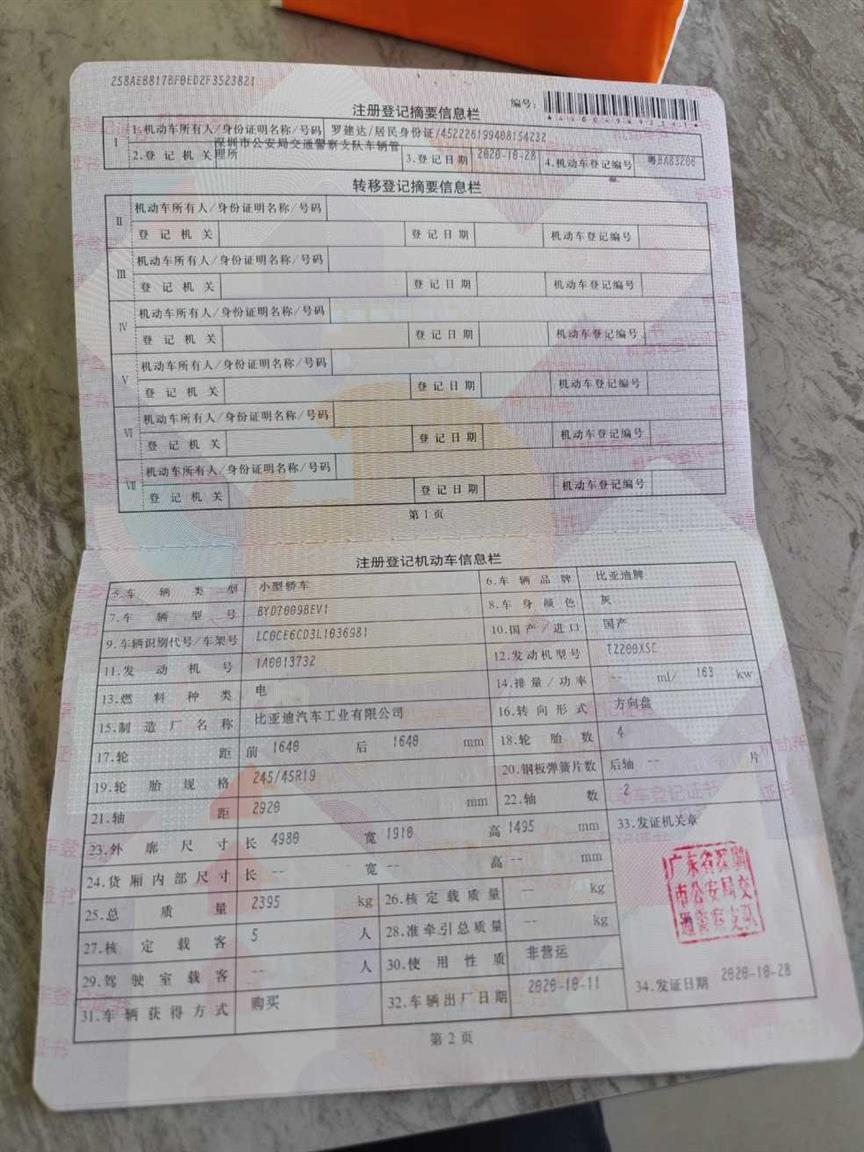 258AEB817BF0ED2F3523821
注册登记摘要信息栏
编号:
I 1.机动车所有人/身份证明名称/号码 罗建达/居民身份证/452226199408154232
2.登记机关 深圳市公安局交通警察支队车辆管理所 3.登记日期 2020-10-28 4.机动车登记编号 粤BA83206
转移登记摘要信息栏
II 机动车所有人/身份证明名称/号码
登记机关 登记日期 机动车登记编号
III 机动车所有人/身份证明名称/号码
登记机关 登记日期 机动车登记编号
IV 机动车所有人/身份证明名称/号码
登记机关 登记日期 机动车登记编号
V 机动车所有人/身份证明名称/号码
登记机关 登记日期 机动车登记编号
VI 机动车所有人/身份证明名称/号码
登记机关 登记日期 机动车登记编号
VII 机动车所有人/身份证明名称/号码
登记机关 登记日期 机动车登记编号
第1页
注册登记机动车信息栏
5.车辆类型 小型轿车 6.车辆品牌 比亚迪牌
7.车辆型号 BYD7009BEV1 8.车身颜色 灰
9.车辆识别代号/车架号 LC0CE6CD3L1036981 10.国产/进口 国产
11.发动机号 1A0013732 12.发动机型号 TZ200XSC
13.燃料种类 电 14.排量/功率 -- ml/ 163 kw
15.制造厂名称 比亚迪汽车工业有限公司 16.转向形式 方向盘
17.轮距 前 1640 后 1640 mm 18.轮胎数 4
19.轮胎规格 245/45R19 20.钢板弹簧片数 后轴 -- 片
21.轴距 2920 mm 22.轴数 2
23.外廓尺寸 长 4980 宽 1910 高 1495 mm 33.发证机关章
24.货厢内部尺寸 长 -- 宽 -- 高 -- mm
25.总质量 2395 kg 26.核定载质量 -- kg
27.核定载客 5 人 28.准牵引总质量 -- kg
广东省深圳市公安局交通警察支队
29.驾驶室载客 -- 人 30.使用性质 非营运
31.车辆获得方式 购买 32.车辆出厂日期 2020-10-11 34.发证日期 2020-10-28
第2页